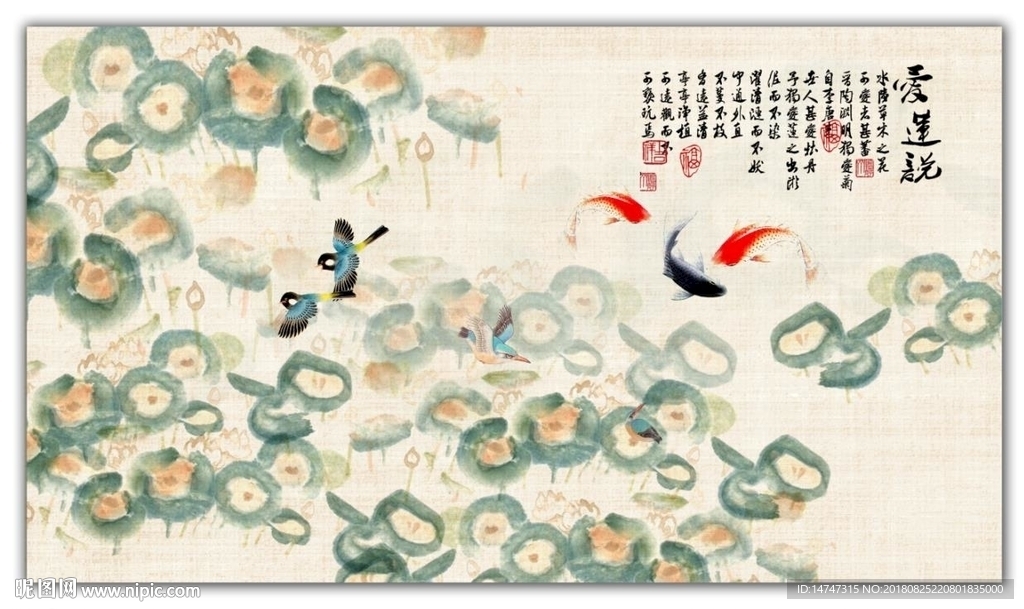 愛蓮說
水陸草木之花
可愛者甚蕃
晉陶淵明獨愛菊
自李唐來
世人甚愛牡丹
予獨愛蓮之出淤
泥而不染
濯清漣而不妖
中通外直
不蔓不枝
香遠益清
亭亭淨植
可遠觀而不
可褻玩焉
昵图网 www.nipic.com
ID:14747315 NO:20180825220801835000